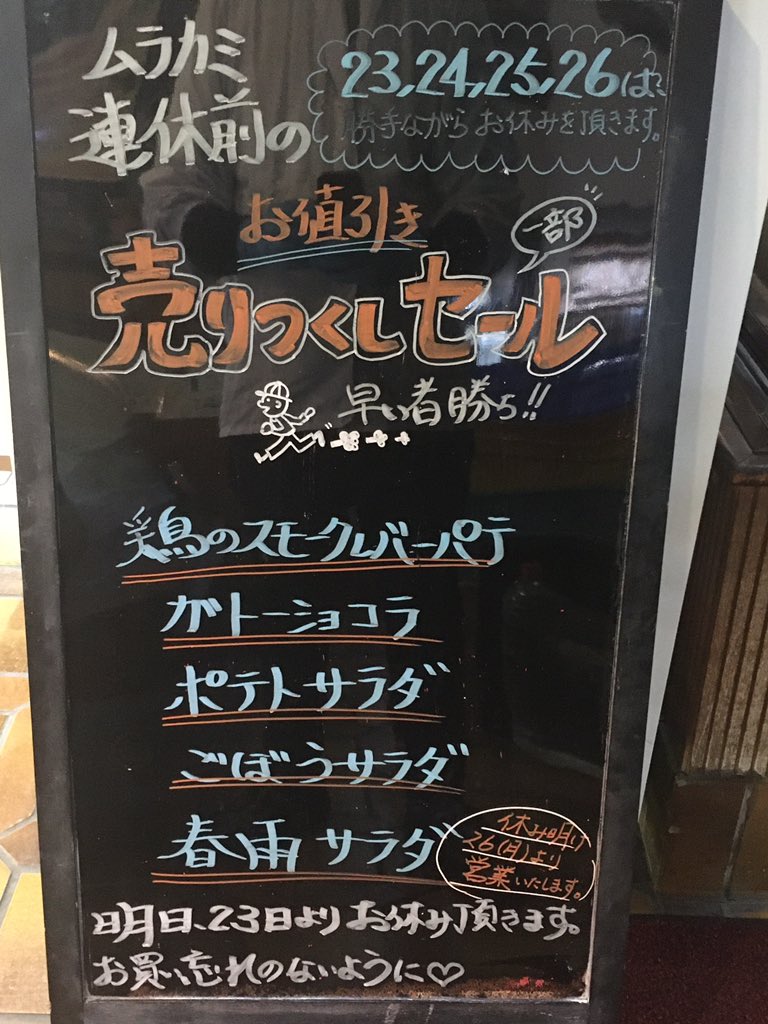 ムラカミ
連休前の
23,24,25,26は
勝手ながらお休みを頂きます。
お値引き
一部
売りつくしセール
早い者勝ち!!
鶏のスモークレバーパテ
ガトーショコラ
ポテトサラダ
ごぼうサラダ
春雨サラダ
休み明け
26(月)より
営業いたします。
明日、23日よりお休み頂きます。
お買い忘れのないように♡